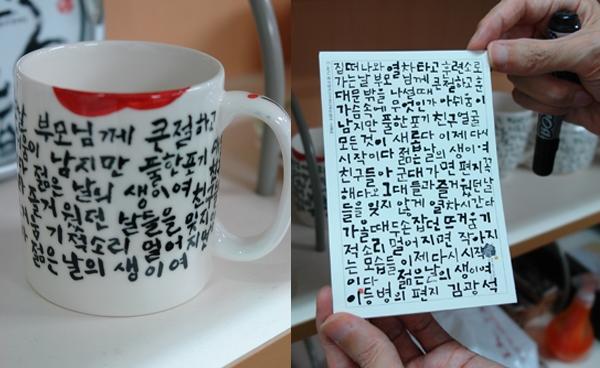 부모님께 큰절하고
남지만 풀한포기
젊은 날의 생이여
즐거웠던 날들을 잊지
기적소리 멀어지면
젊은날의 생이여
집떠나와 열차타고 훈련소로
가는날 부모님께 큰절하고
대문밖을 나설때
가슴속에 무엇인가 아쉬움이
남지만 풀한포기 친구얼굴
모든것이 새롭다 이제다시
시작이다 젊은날의 생이여
친구들아 군대가면 편지꼭
해다오 그대들과 즐거웠던날
들을 잊지않게 열차시간다
가올때 두손잡던 뜨거움 기
적소리 멀어지면 작아지
는 모습들 이제다시 시작
이다 젊은날의 생이여
이등병의 편지 김광석